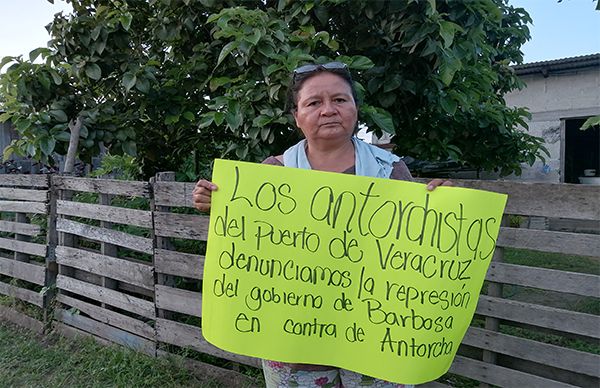 Los antorchistas
del Puerto de Veracruz
denunciamos la represión
del gobierno de Barbosa
en contra de Antorcha